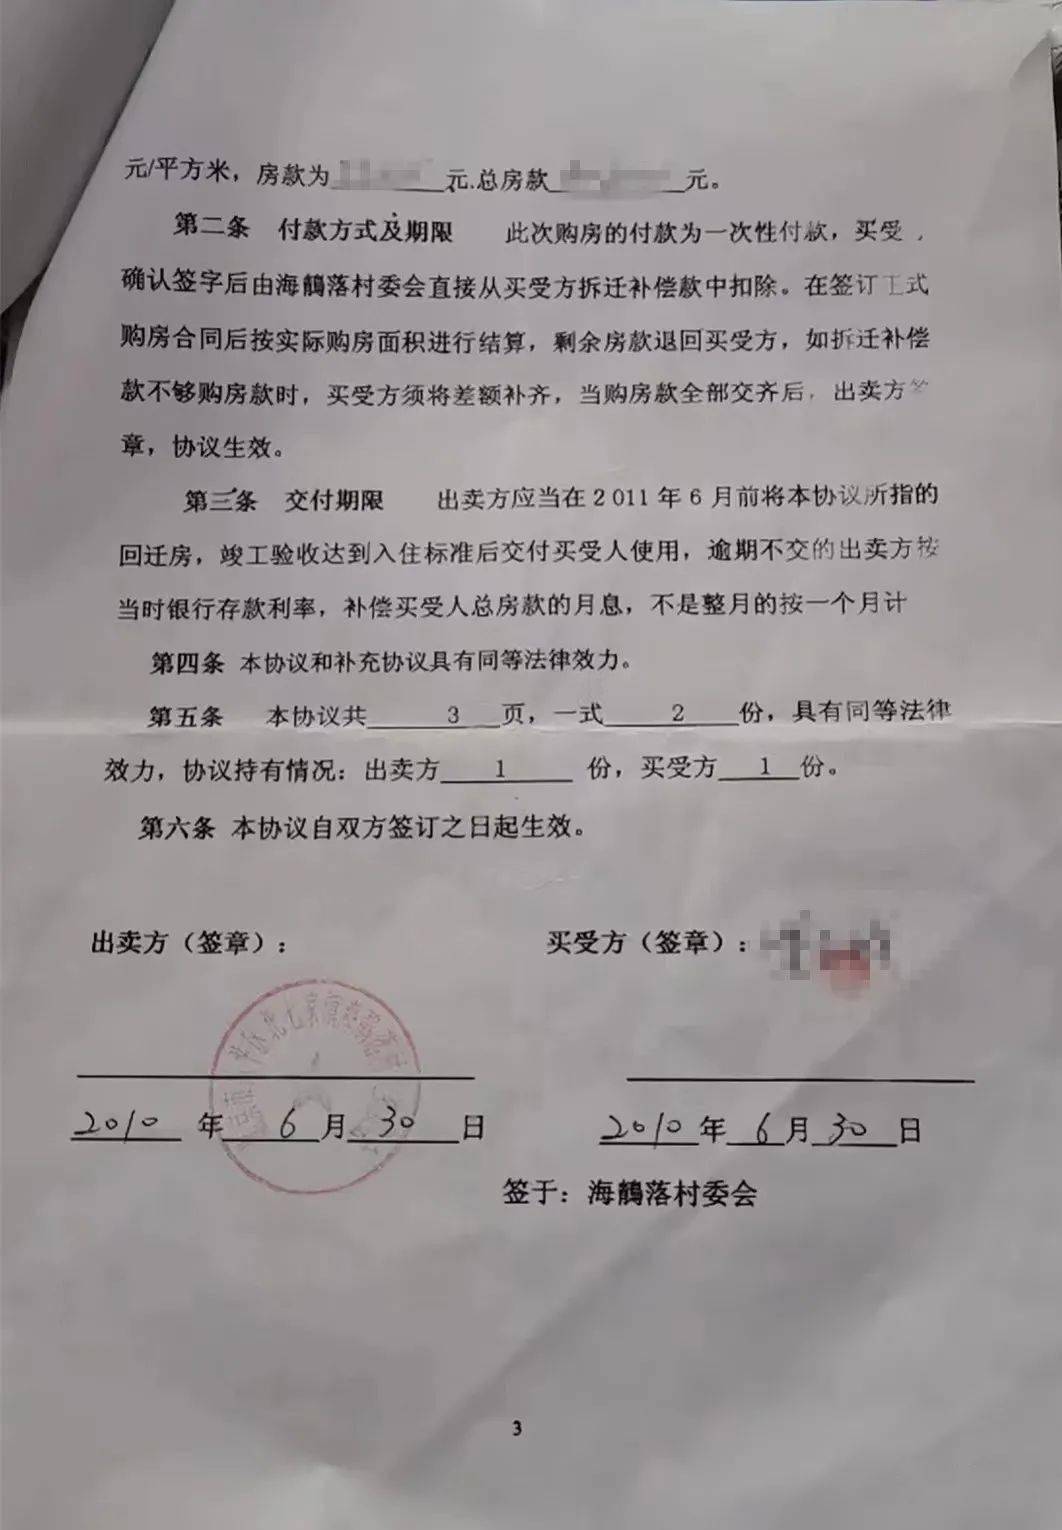 元/平方米，房款为元.总房款元。
第二条 付款方式及期限 此次购房的付款为一次性付款，买受
确认签字后由海鶄落村委会直接从买受方拆迁补偿款中扣除。在签订正式
购房合同后按实际购房面积进行结算，剩余房款退回买受方，如拆迁补偿
款不够购房款时，买受方须将差额补齐，当购房款全部交齐后，出卖方签
章，协议生效。
第三条 交付期限 出卖方应当在2011年6月前将本协议所指的
回迁房，竣工验收达到入住标准后交付买受人使用，逾期不交的出卖方按
当时银行存款利率，补偿买受人总房款的月息，不是整月的按一个月计
第四条 本协议和补充协议具有同等法律效力。
第五条 本协议共3页，一式2份，具有同等法律
效力，协议持有情况：出卖方1份，买受方1份。
第六条 本协议自双方签订之日起生效。
出卖方（签章）： 买受方（签章）：
2010年6月30日 2010年6月30日
签于：海鶄落村委会
3